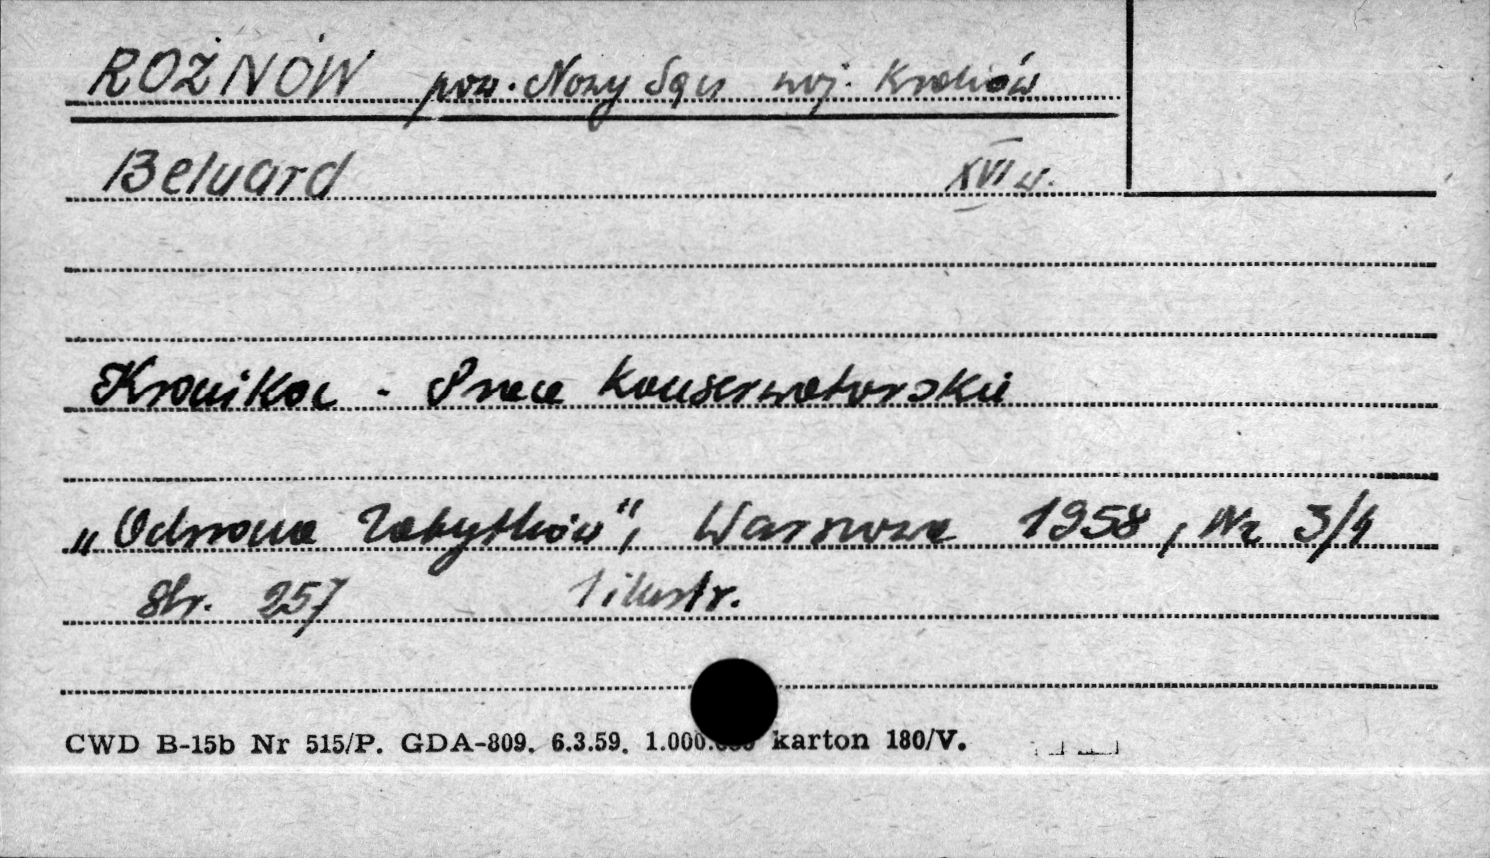 ROŻNÓW pow. Nowy Sącz woj. Kraków
Beluard XVI w.
Kronika - Prace konserwatorskie
„Ochrona Zabytków”, Warszawa 1958, Nr 3/4
str. 257 1 ilustr.
CWD B-15b Nr 515/P. GDA-809. 6.3.59. 1.000.000 karton 180/V.